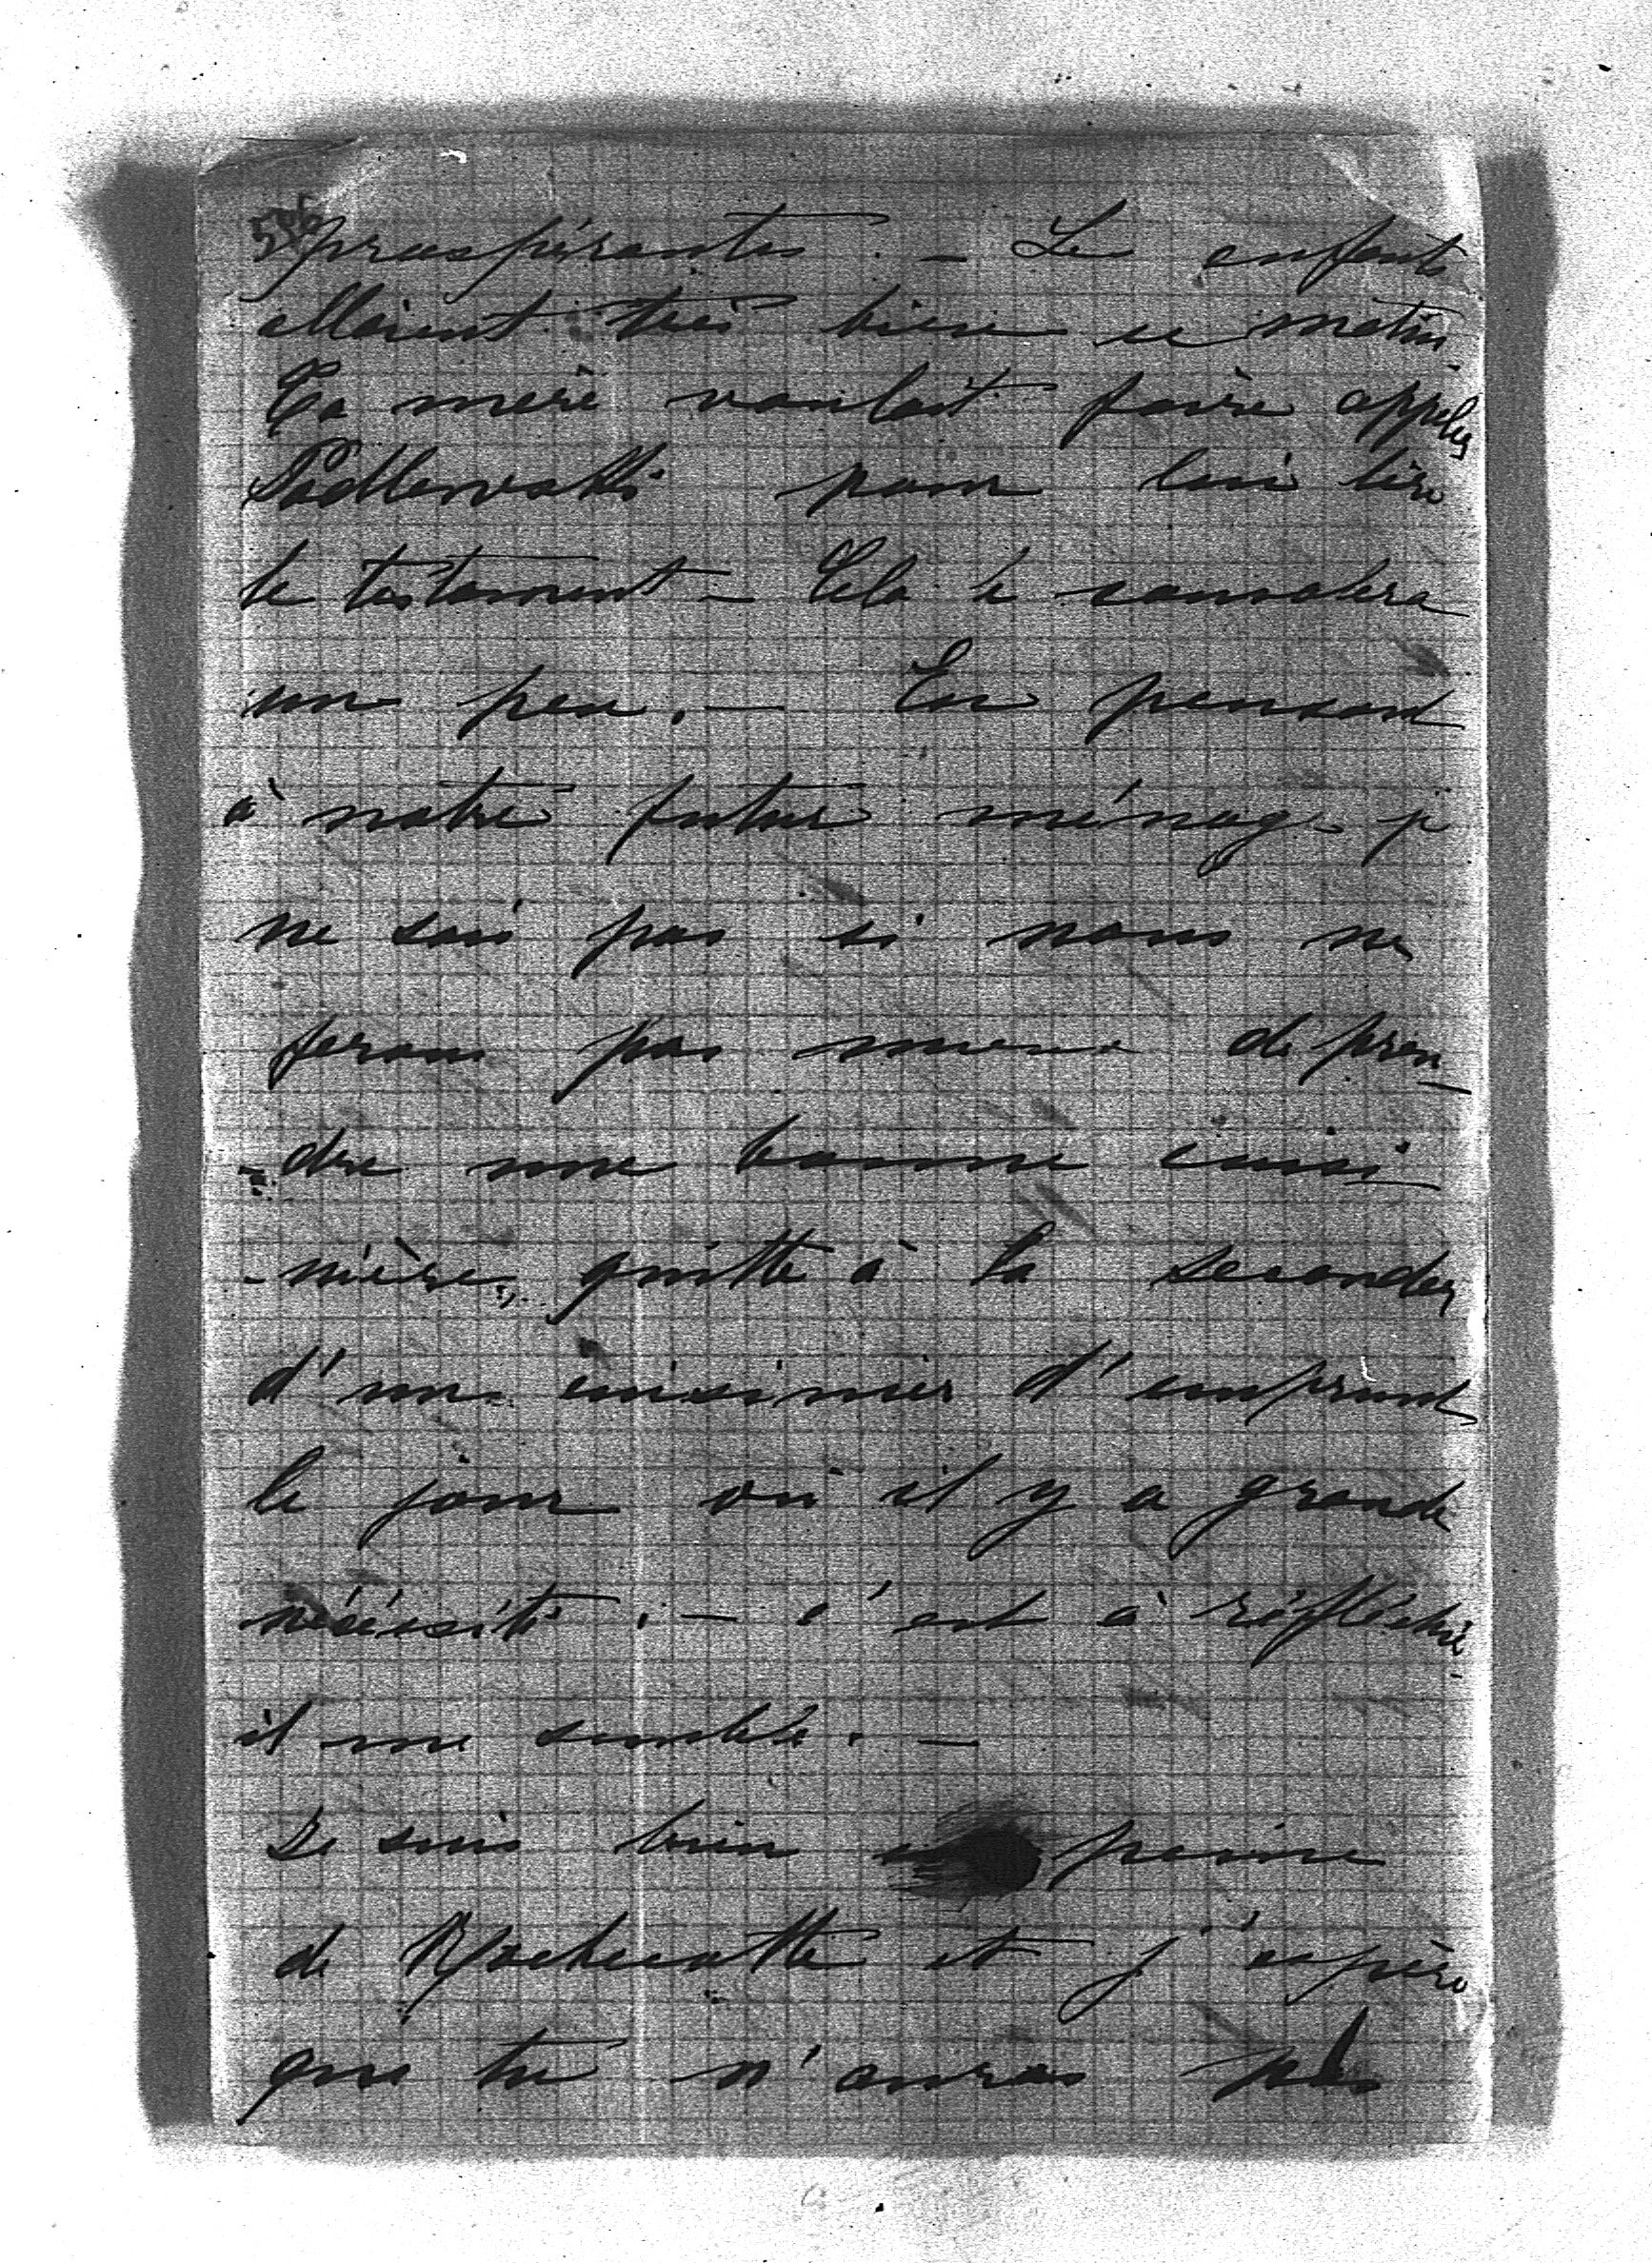 prospérantes. – Les enfants
allaient très bien ce matin.
Ta mère voulait faire appeler
Podlewski pour lui lire
le testament – Cela le consolera
un peu. – En pensant
à notre futur ménage je
ne sais pas si nous ne
ferons pas mieux de pren-
-dre une bonne cuisi-
-nière, quitte à la seconder
d'un cuisinier d'emprunt
le jour où il y a grande
nécessité. – c'est à réfléchir
il me semble. –
Je suis bien en peine
de Rochecotte et j'espère
que tu n'auras pas